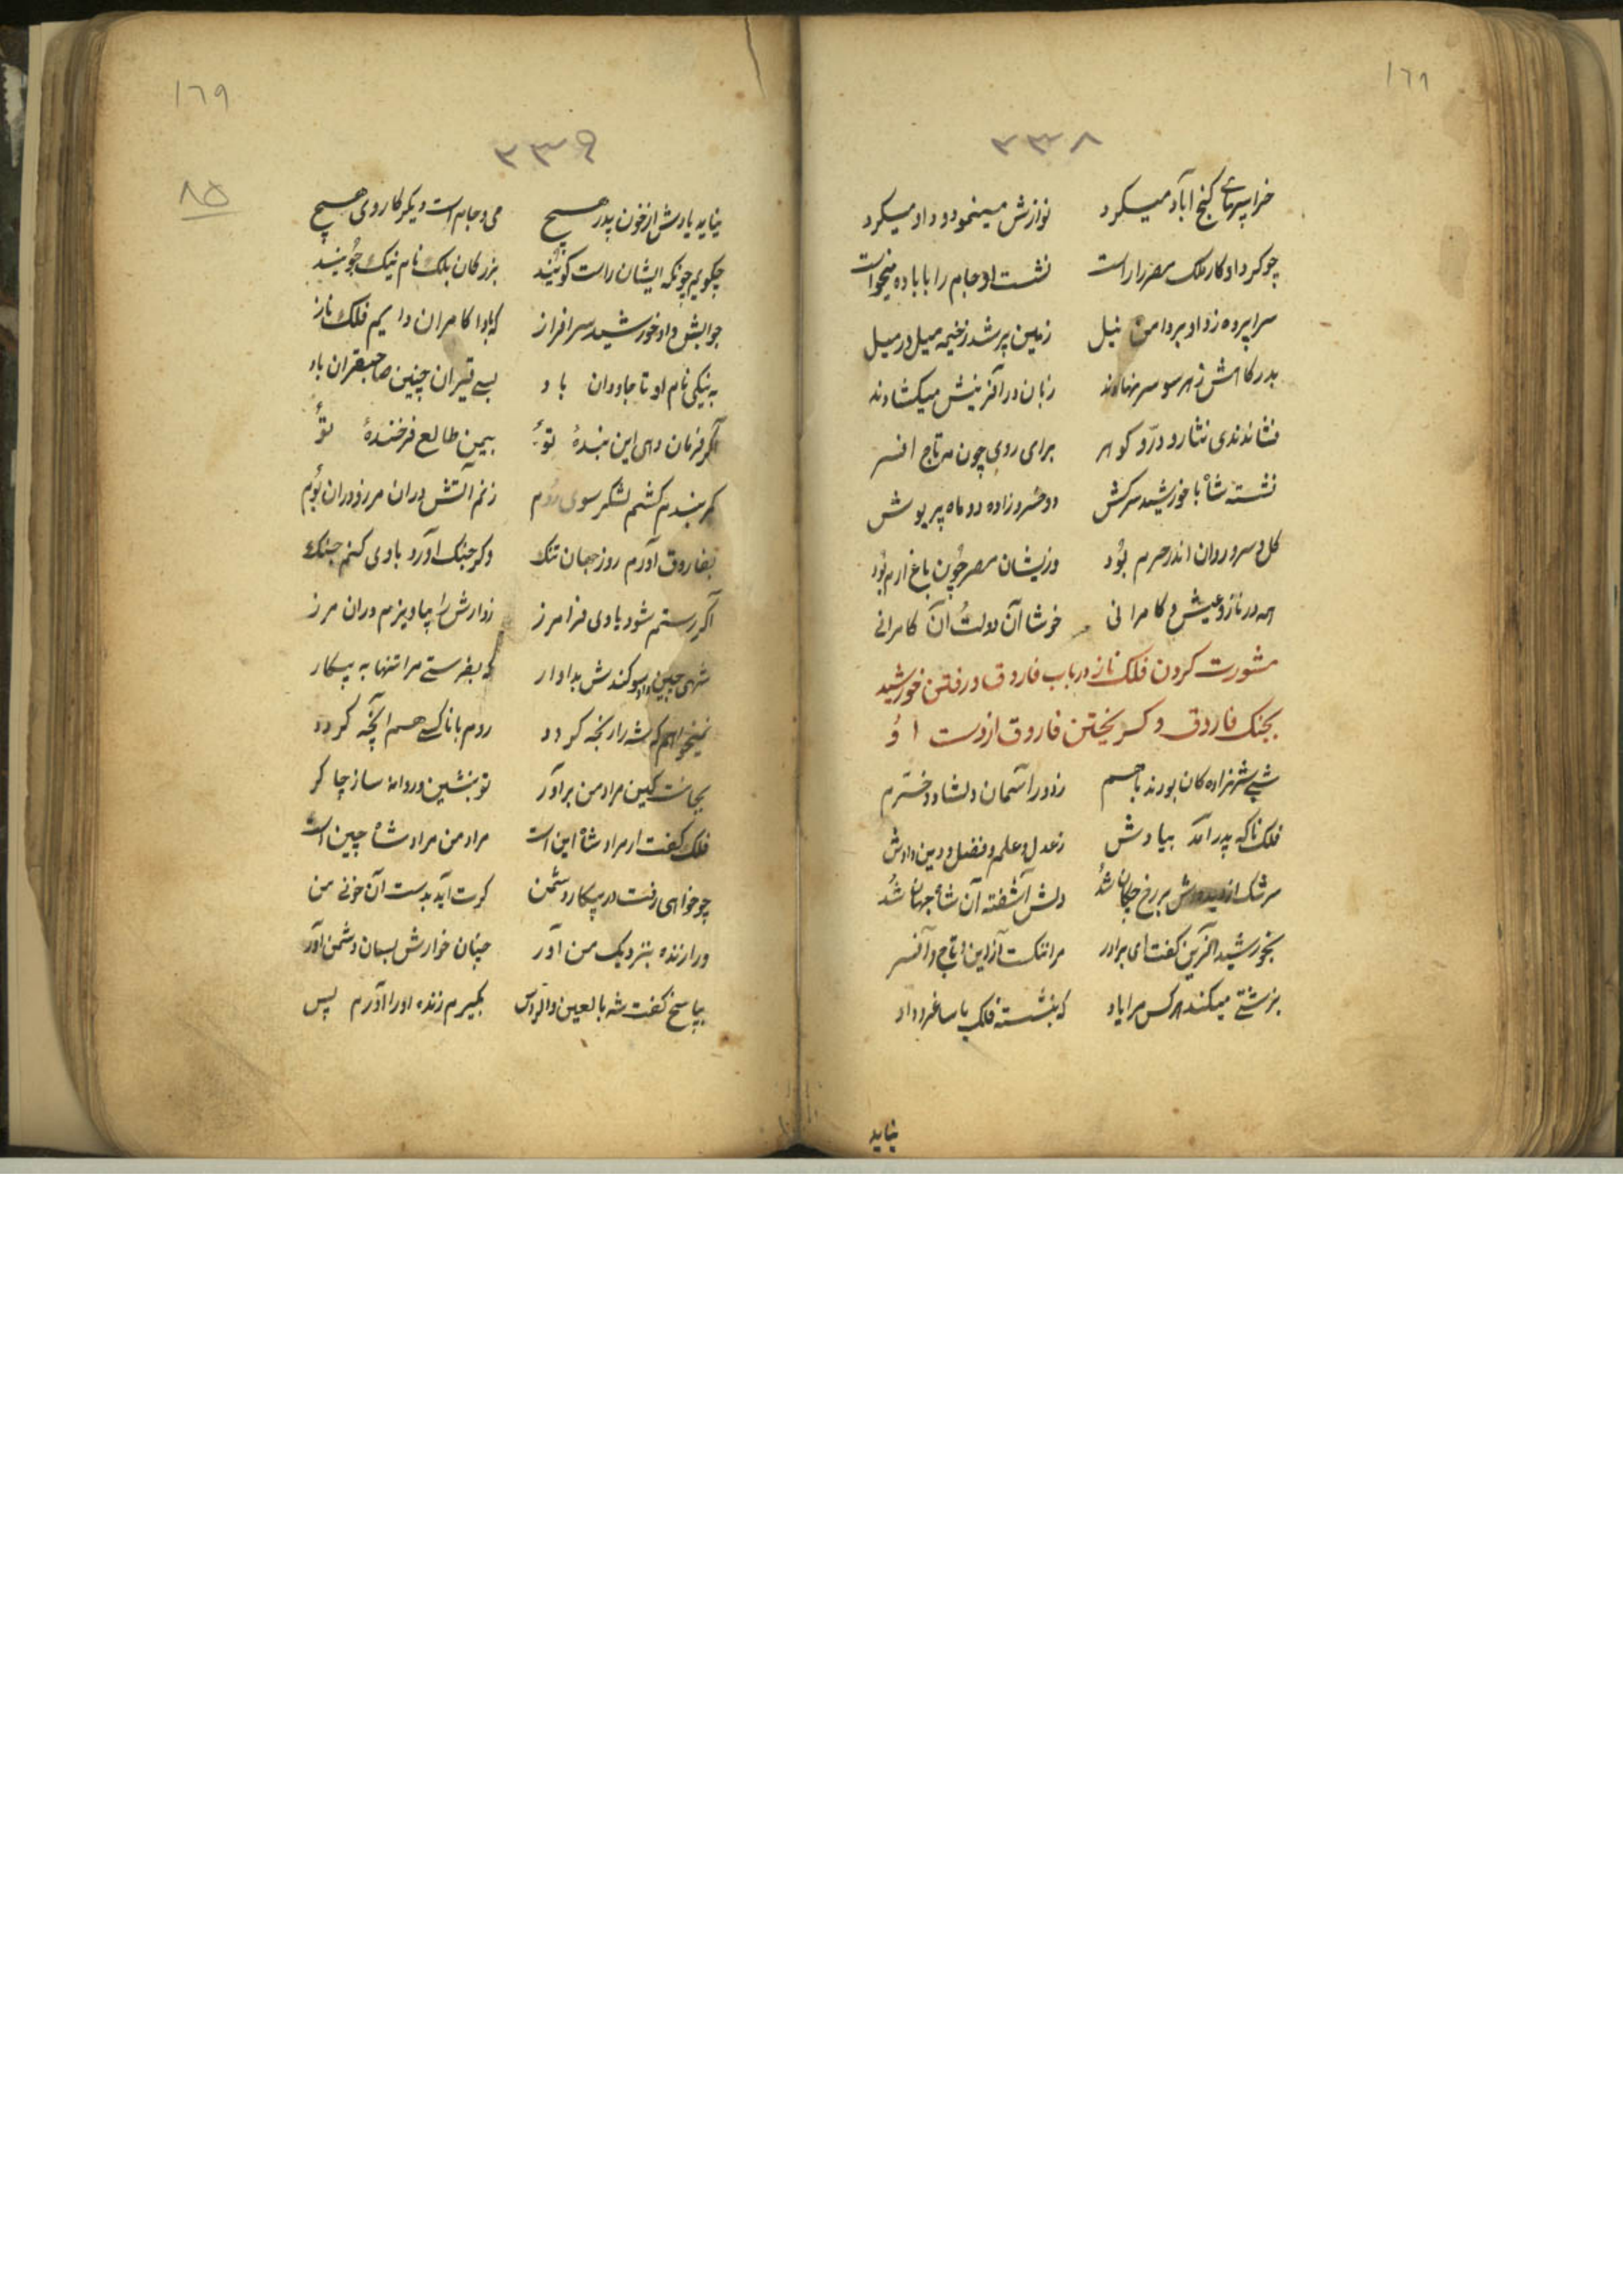 ١٦٨
٣٣٨
خرابیهای گنج آباد میکرد نوازش مینمود و داد میکرد
چو کرد او کار ملک مصر را راست نشست او جام را با باده میخواست
سراپرده زد او بر دامن نیل زمین پر شد ز خیمه میل در میل
بدرکاهش ز هر سو سر نهادند زبان در آفرینش میکشادند
فشاندندی نثار و درّ و کوهر برای روی چون مه تاج افسر
نشسته شاه با خورشید سرکش دو خسرو زاده دو ماه پریوش
کل و سرو روان اندر حرم بُود وزیشان مصر چون باغ ارم بُود
همه در ناز و عیش و کامرانی خوشا آن دولت آن کامرانی
مشورت کردن فلک ناز در باب فاروق و رفتن خورشید
بجنک فاروق و کریختن فاروق از دست اوُ
شبی شهزاده کان بودند باهم ز دور آسمان دلشاد و خرّم
فلک ناکه پدر آمد بیادش ز عدل و علم و فضل و دین و دادش
سرشک از دیده‌اش بر رخ چکان شُد دلش آشفته آن شاه جهان شُد
بخورشید آفرین کفت ای برادر مرا ننکست از این تاج و افسر
بزشتی میکند هر کس مرا یاد که بنشسته فلک با ساغر و داد
نیاید
١٦٩
٣٣٩
٨٥
نیاید یادش از خون پدر هیچ می و جام است دیکر کار وی هیچ
چکویم چونکه ایشان راست کویند بزرکان بلک نام نیک جُویند
جوابش داد خورشید سرافراز که بادا کامران دایم فلک ناز
به نیکی نام او تا جاودان باد بسی تیران چنین صاحبقران باد
اکر فرمان دهی این بندهٔ توُ بیمن طالع فرخندهٔ توُ
کمر بندم کشم لشکر سوی روُم زنم آتش دران مرز و دران بوُم
بفاروق آورم روز جهان تنک وکر جنک آورد با وی کنم جنک
اکر رستم شود با وی فرامرز ز دارش را بیاویزم دران مرز
شهی چین داد سوکندش بدادار که بفرستی مرا تنها به پیکار
نمیخواهم که شه را رنجه کردد روم با ناکسی هم پنجه کردد
بجانت کین مراد من برآور تو بنشین و روانه ساز چاکر
فلک کفت ار مراد شاه این است مراد من مراد شاه چین است
چو خواهی رفت در پیکار دشمن کرت آید بدست آن خونی من
ورا زنده بنزدیک من آور چنان خوارش بسان دشمن آور
بپاسخ کفت شه بالعین والراس بکیرم زنده او را آورم پس